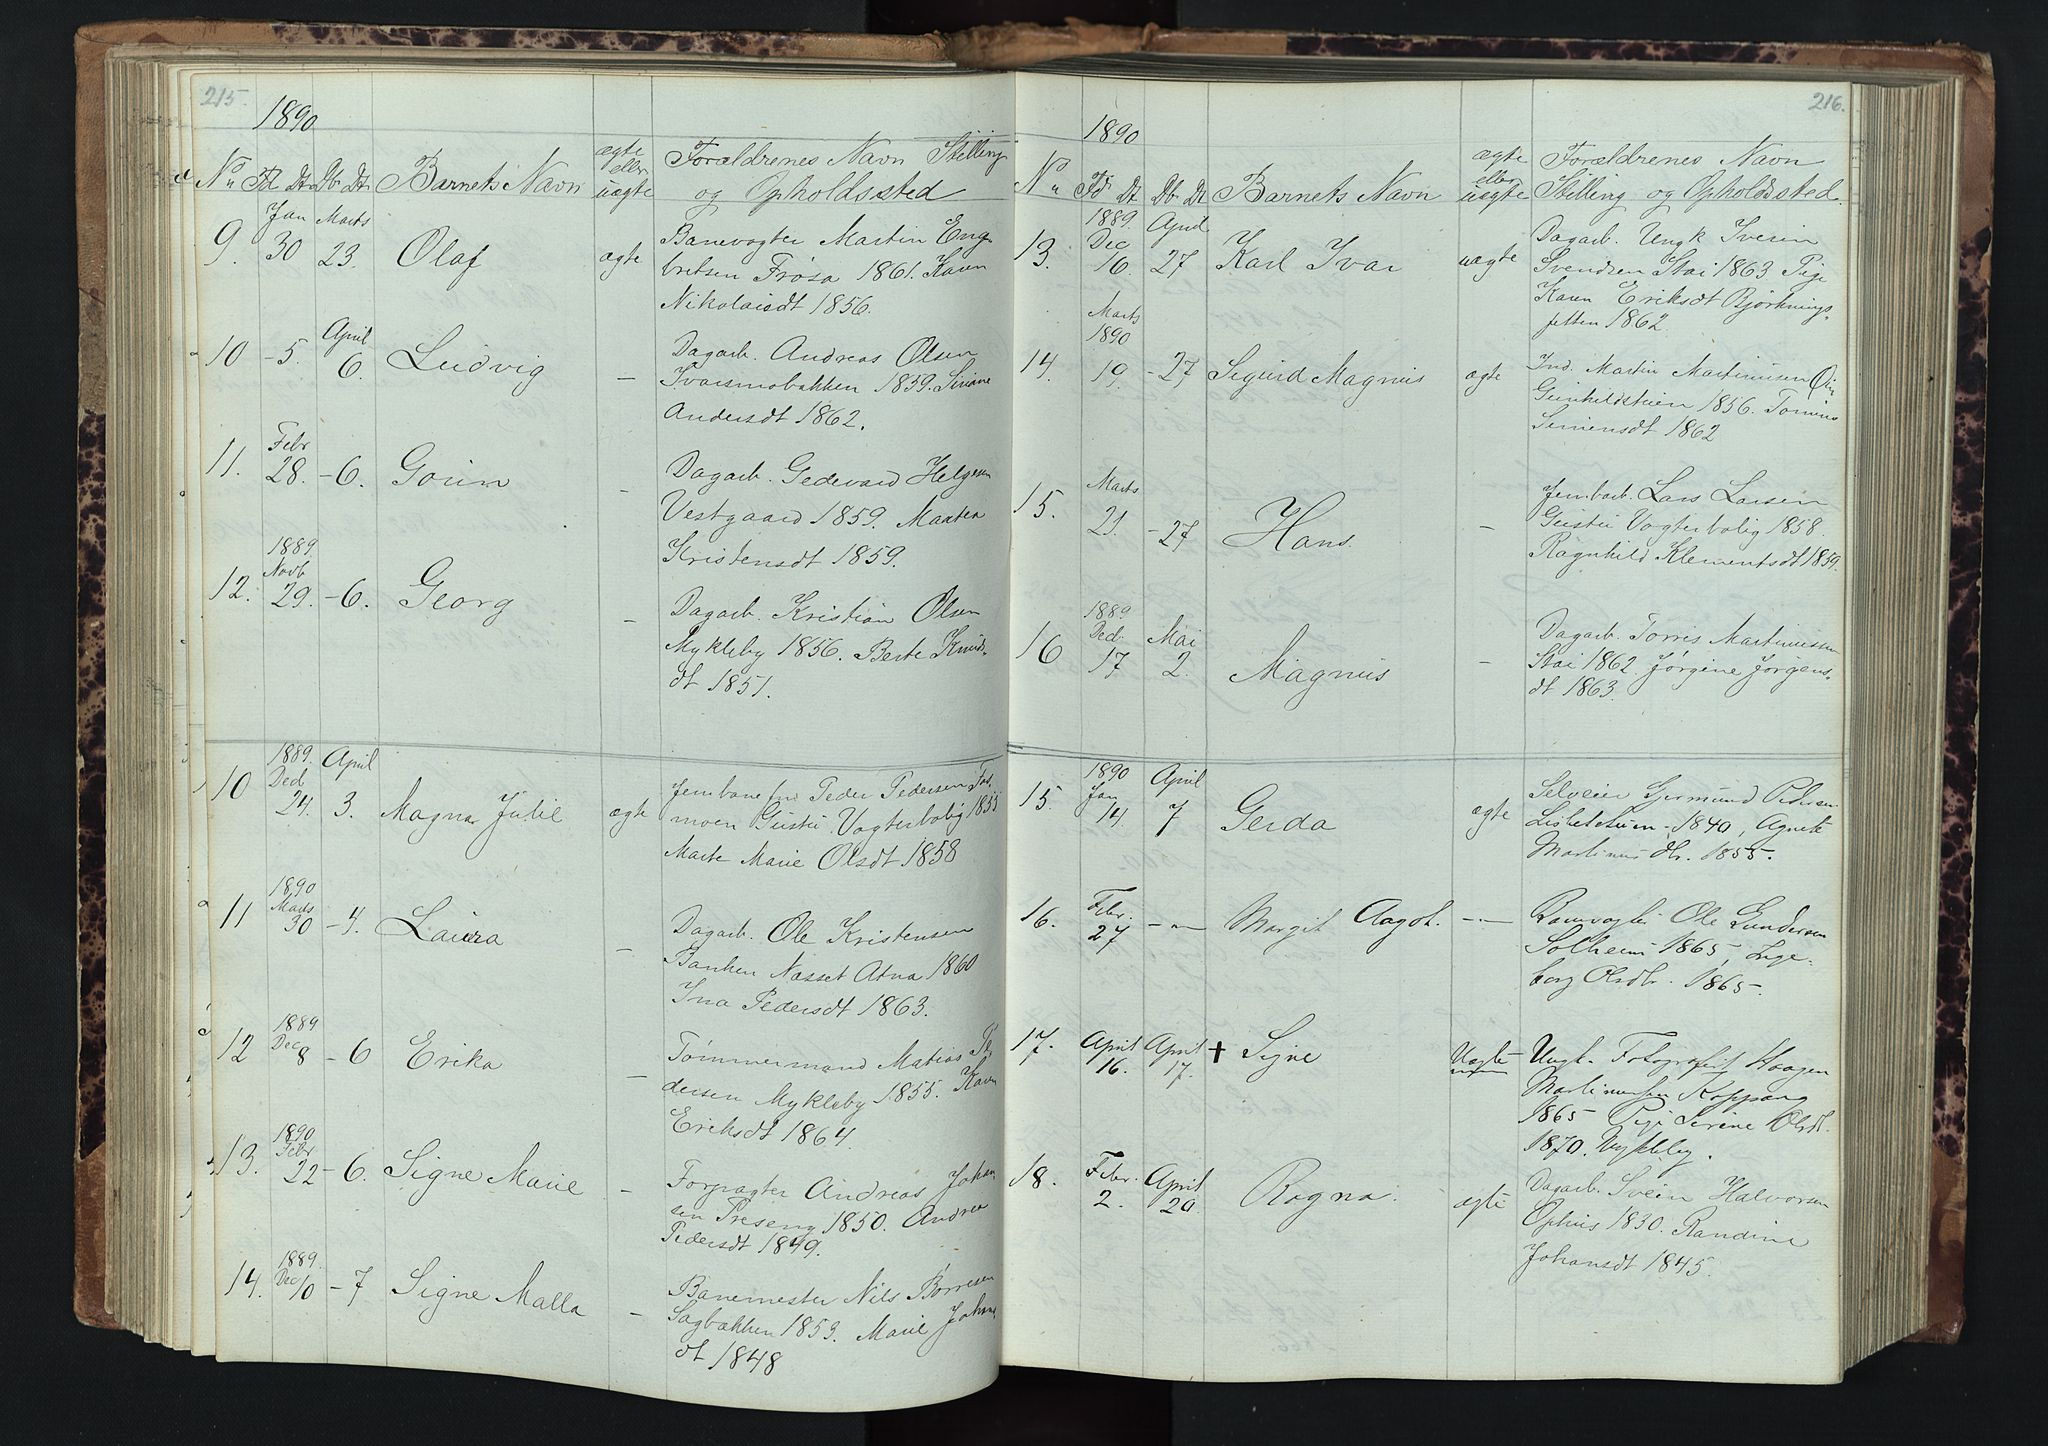 215.
1890
No Fd Dt. Db. Dt. Barnets Navn ægte eller uægte Forældrenes Navn Stilling
og Opholdssted
9. Jan 30 Marts 23. Olaf ægte Banevogter Martin Eng-
bretsen Frøsa 1861. Karen
Nikolaisdt 1856.
10 - 5. April 6. Ludvig - Dagarb. Andreas Olsen
Ivarsmobakken 1859. Simine
Andersdt 1862.
11. Febr 28. - 6. Gorim - Dagarb. Gedevard Helgesen
Vestgaard 1859. Marten
Kristensdt 1859.
12. 1889. Novb 29. - 6. Georg - Dagarb. Kristian Olsen
Mykleby 1856. Berte Knuds-
dt 1851.
10 1889. Dec. 24. April 3. Magna Julie ægte Jernbane Peder Pedersen Fos-
moen Gustu Vogterbolig 1855
Marte Marie Olsdt 1858
11 1890 Marts 30 - 4. Laura - Dagarb. Ole Kristensen
Banken Næsset Atna 1860
Ina Pedersdt 1863.
12 1889 Dec 8 - 6 Erika - Tømmermand Matias Pe-
dersen Mykleby 1855. Karen
Eriksdt 1864.
13. 1890 Febr 22 - 6. Signe Marie - Forpagter Andreas Johan
sen Preseng 1850. Andrea
Pedersdt 1849.
14. 1889. Dec 10 - 7 Signe Malla - Banemester Nils Børresen
Sagbakken 1853. Marie Johans
dt 1848
216.
1890
No Fd Dt Db Dt Barnets Navn ægte eller uægte Forældrenes Navn
Stilling og Opholdssted.
13. 1889. Dec 16. April 27 Karl Ivar uægte Dagarb. Ungk Iversen
Svendsen Stai 1863 Pige
Karen Eriksdt Bjørknings-
fetten 1862.
14. Marts 1890 19. - 27 Sigurd Magnus ægte Ind. Martin Martinusen
Gunhildstuen 1856. Tomine
Simensdt 1862
15. Marts 21. - 27 Hans. - Jernbarb. Lars Larsen
Gustu Vogterbolig 1858.
Ragnhild Klementsdt 1859.
16 1889. Dec. 17 Mai 2. Magnus - Dagarb. Torris Martinussen
Stai 1862. Jørgine Jørgens-
dt 1863.
15. 1890 Jan 14. April 7 Gerda ægte Selveier Gjermund Pedersen
Lisbetstuen 1840, Agnete
Martinus dtr. 1855.
16. Febr. 27 - " - Margit Aagot. - " - Banevogter Ole Gundersen
Solheim 1865, Inge-
borg Olsdtr. 1865.
17. April 16. April 17. + Signe Uægte Ungk. Fotografist Haagen
Martinussen Koppang
1865 Pige Serine Olsdt.
1870. Mykleby.
18. Febr. 2. April 20. Ragna. ægte Dagarb. Svein Halvorsen
Ophus 1830. Randine
Johansdt 1845.